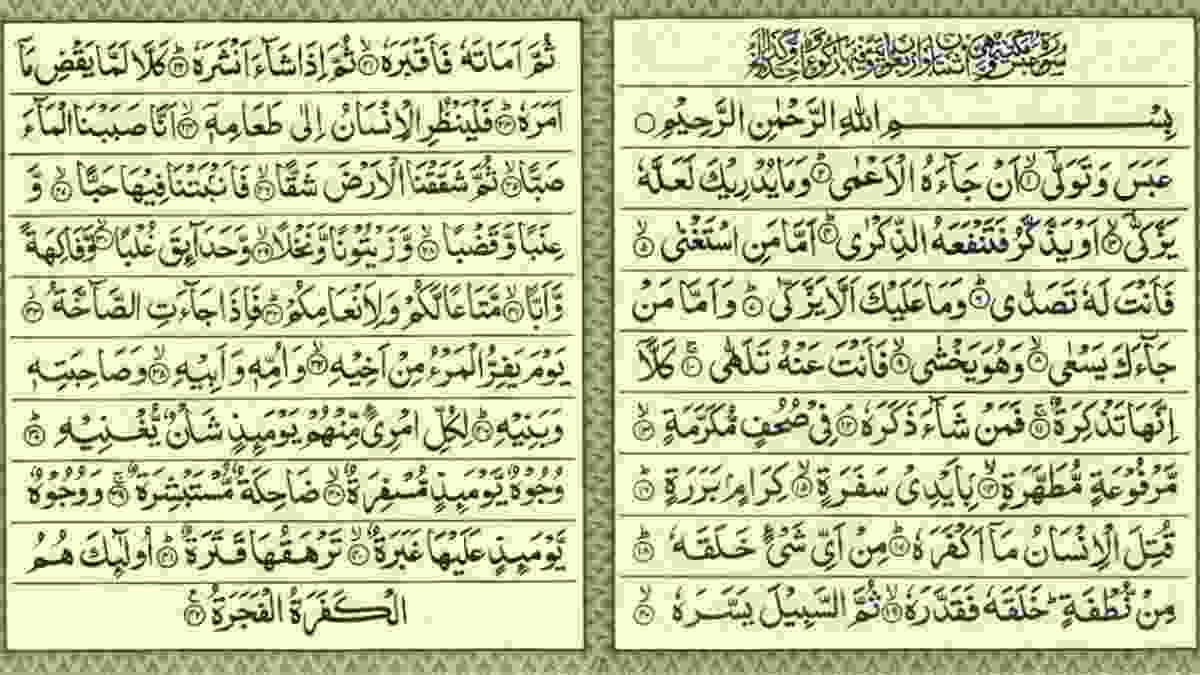 سورة عبس مكية وهى اثنان واربعون اية وركوع واحد
بِسْمِ اللهِ الرَّحْمٰنِ الرَّحِيْمِ ○
عَبَسَ وَتَوَلّٰٓى ۙ﴿۱﴾ اَنْ جَآءَهُ الْاَعْمٰى ؕ﴿۲﴾ وَمَا يُدْرِيْكَ لَعَلَّهٗ
يَزَّكّٰٓى ۙ﴿۳﴾ اَوْ يَذَّكَّرُ فَتَنْفَعَهُ الذِّكْرٰى ؕ﴿۴﴾ اَمَّا مَنِ اسْتَغْنٰى ۙ﴿۵﴾
فَاَنْتَ لَهٗ تَصَدّٰى ؕ﴿۶﴾ وَمَا عَلَيْكَ اَلَّا يَزَّكّٰى ؕ﴿۷﴾ وَاَمَّا مَنْ
جَآءَكَ يَسْعٰى ۙ﴿۸﴾ وَهُوَ يَخْشٰى ۙ﴿۹﴾ فَاَنْتَ عَنْهُ تَلَهّٰى ۚ﴿۱۰﴾ كَلَّاۤ
اِنَّهَا تَذْكِرَةٌ ۚ﴿۱۱﴾ فَمَنْ شَآءَ ذَكَرَهٗ ۘ﴿۱۲﴾ فِىْ صُحُفٍ مُّكَرَّمَةٍ ۙ﴿۱۳﴾
مَّرْفُوْعَةٍ مُّطَهَّرَةٍۭ ۙ﴿۱۴﴾ بِاَيْدِىْ سَفَرَةٍ ۙ﴿۱۵﴾ كِرَامٍۭ بَرَرَةٍ ؕ﴿۱۶﴾
قُتِلَ الْاِنْسَانُ مَاۤ اَكْفَرَهٗ ؕ﴿۱۷﴾ مِنْ اَىِّ شَىْءٍ خَلَقَهٗ ؕ﴿۱۸﴾
مِنْ نُّطْفَةٍ ؕ خَلَقَهٗ فَقَدَّرَهٗ ۙ﴿۱۹﴾ ثُمَّ السَّبِيْلَ يَسَّرَهٗ ۙ﴿۲۰﴾
ثُمَّ اَمَاتَهٗ فَاَقْبَرَهٗ ۙ﴿۲۱﴾ ثُمَّ اِذَا شَآءَ اَنْشَرَهٗ ؕ﴿۲۲﴾ كَلَّا لَمَّا يَقْضِ مَاۤ
اَمَرَهٗ ؕ﴿۲۳﴾ فَلْيَنْظُرِ الْاِنْسَانُ اِلٰى طَعَامِهٖۤ ۙ﴿۲۴﴾ اَنَّا صَبَبْنَا الْمَآءَ
صَبًّا ۙ﴿۲۵﴾ ثُمَّ شَقَقْنَا الْاَرْضَ شَقًّا ۙ﴿۲۶﴾ فَاَنْۢبَتْنَا فِيْهَا حَبًّا ۙ﴿۲۷﴾ وَّ
عِنَبًا وَّقَضْبًا ۙ﴿۲۸﴾ وَّزَيْتُوْنًا وَّنَخْلًا ۙ﴿۲۹﴾ وَّحَدَآئِقَ غُلْبًا ۙ﴿۳۰﴾ وَّفَاكِهَةً
وَّاَبًّا ۙ﴿۳۱﴾ مَّتَاعًا لَّكُمْ وَلِاَنْعَامِكُمْ ؕ﴿۳۲﴾ فَاِذَا جَآءَتِ الصَّآخَّةُ ۫﴿۳۳﴾
يَوْمَ يَفِرُّ الْمَرْءُ مِنْ اَخِيْهِ ۙ﴿۳۴﴾ وَاُمِّهٖ وَاَبِيْهِ ۙ﴿۳۵﴾ وَصَاحِبَتِهٖ
وَبَنِيْهِ ؕ﴿۳۶﴾ لِكُلِّ امْرِئٍ مِّنْهُمْ يَوْمَئِذٍ شَاْنٌ يُّغْنِيْهِ ؕ﴿۳۷﴾
وُجُوْهٌ يَّوْمَئِذٍ مُّسْفِرَةٌ ۙ﴿۳۸﴾ ضَاحِكَةٌ مُّسْتَبْشِرَةٌ ۚ﴿۳۹﴾ وَوُجُوْهٌ
يَّوْمَئِذٍ عَلَيْهَا غَبَرَةٌ ۙ﴿۴۰﴾ تَرْهَقُهَا قَتَرَةٌ ؕ﴿۴۱﴾ اُولٰٓئِكَ هُمُ
الْكَفَرَةُ الْفَجَرَةُ ۠﴿۴۲﴾